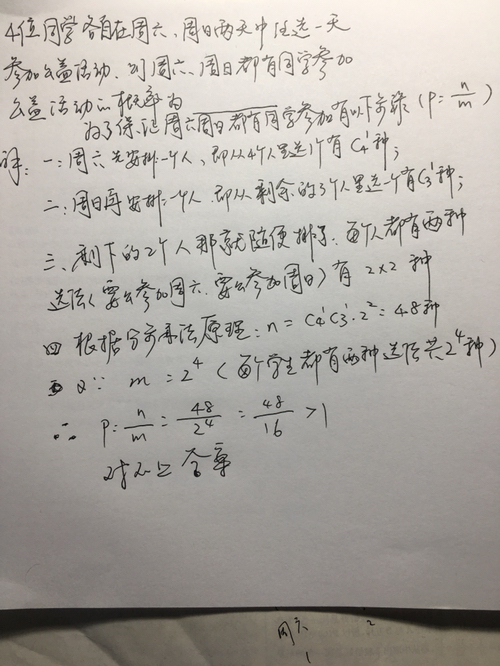 4位同学各自在周六、周日两天中任选一天
参加公益活动.则周六.周日都有同学参加
公益活动的概率为
为了保证周六周日都有同学参加有以下步骤(P=n/m)
解: 一:周六先安排一个人,即从4个人里选1个有C₄¹种;
二:周日再安排一个人.即从剩余的3个人里选一个有C₃¹种;
三、剩下的2个人那就随便排了.每个人都有两种
选法(要么参加周六.要么参加周日)有 2×2 种
四 根据分步乘法原理:n=C₄¹C₃¹·2²=48种
又∵ m=2⁴(每个学生都有两种选法共2⁴种)
∴ P=n/m=48/2⁴=48/16>1
对不上答案
周六 2
1